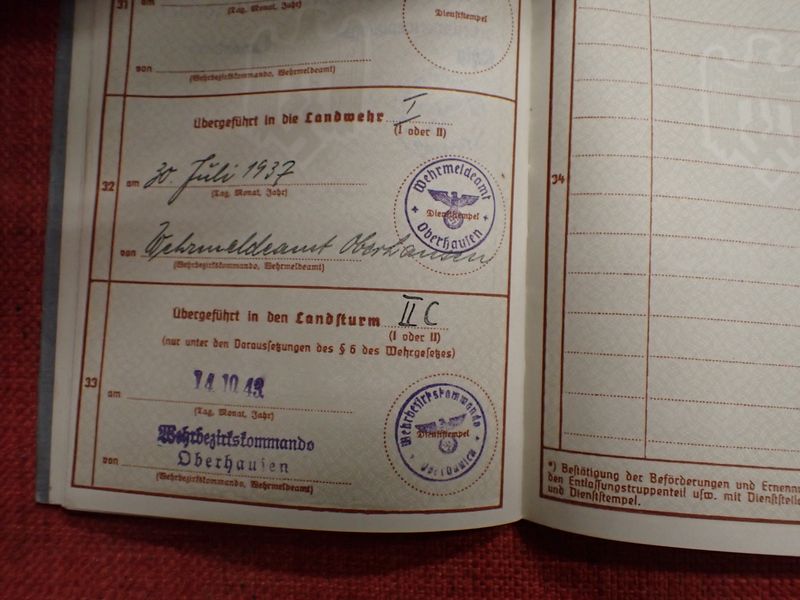 31
am
(Tag, Monat, Jahr)
Dienststempel
von
(Wehrbezirkskommando, Wehrmeldeamt)
Übergeführt in die Landwehr I
(I oder II)
32
am 30. Juli 1937
(Tag, Monat, Jahr)
Wehrmeldeamt
Dienststempel
Oberhausen
von Wehrmeldeamt Oberhausen
(Wehrbezirkskommando, Wehrmeldeamt)
Übergeführt in den Landsturm II C
(I oder II)
(nur unter den Voraussetzungen des § 6 des Wehrgesetzes)
33
am 14.10.43
(Tag, Monat, Jahr)
Wehrbezirkskommando
Dienststempel
Oberhausen
Wehrbezirkskommando
von Oberhausen
(Wehrbezirkskommando, Wehrmeldeamt)
34
*) Bestätigung der Beförderungen und Ernenn
den Entlassungstruppenteil usw. mit Dienststelle
und Dienststempel.